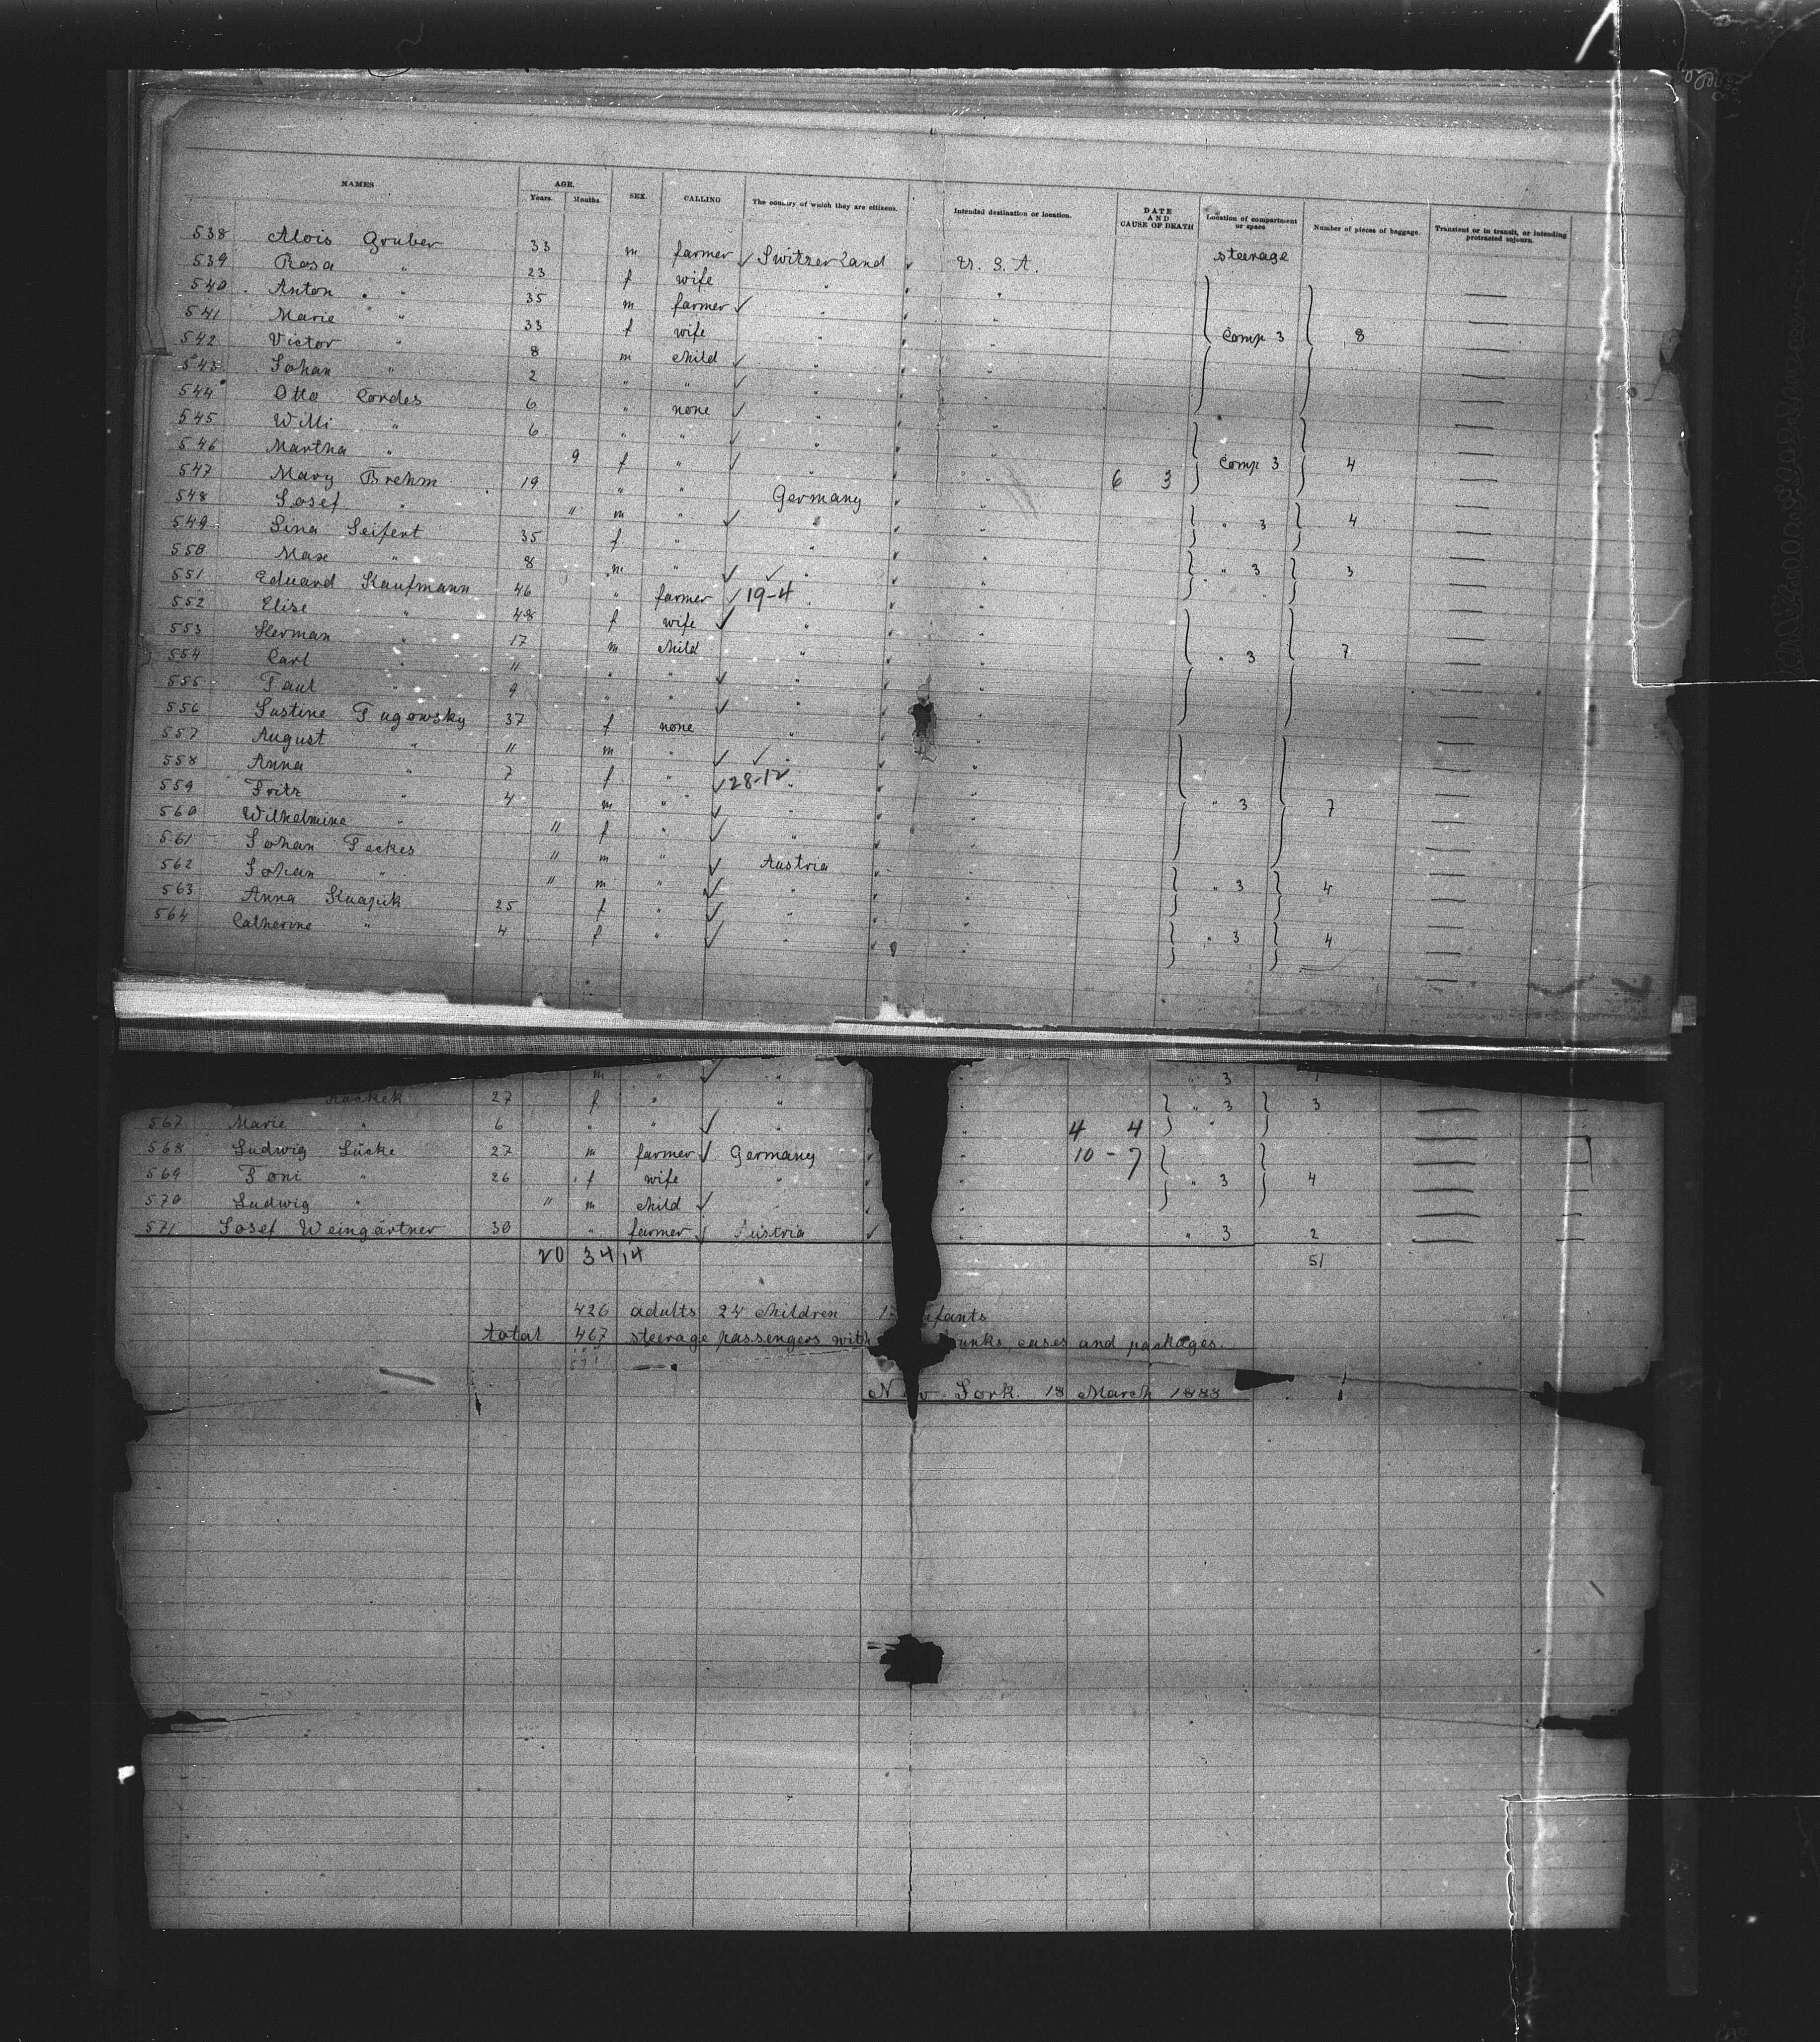 NAMES AGE. Years. Months. SEX. CALLING The country of which they are citizens. Intended destination or location. DATE AND CAUSE OF DEATH Location of compartment or space Number of pieces of baggage. Transient or in transit, or intending protracted sojourn.
538 Alois Gruber 33 m farmer Switzerland U. S. A. steerage
539 Rosa " 23 f wife " "
540 Anton " 35 m farmer " "
541 Marie " 33 f wife " " Comp 3 8
542 Victor " 8 m child " "
543 Johan " 2 " " " "
544 Otto Cordes 6 " none " "
545 Willi " 6 " " " "
546 Martha " 9 f " " " Comp 3 4
547 Mary Brehm 19 " " Germany " 6 3
548 Josef " " m " " " " 3 4
549 Lina Seifert 35 f " " "
550 Max " 8 m " " " " 3 3
551 Eduard Kaufmann 46 " farmer 19-4 " "
552 Elise " 48 f wife " "
553 Herman " 17 m child " " " 3 7
554 Carl " 11 " " " "
555 Paul " 9 " " " "
556 Justine Pugowsky 37 f none " "
557 August " 11 m " " "
558 Anna " 7 f " 28-12 " "
559 Fritz " 4 m " " " " 3 7
560 Wilhelmine " 11 f " " "
561 Johan Feckes 11 m " Austria "
562 Johan " 11 m " " " " 3 4
563 Anna Knapik 25 f " " "
564 Catherine " 4 f " " " " 3 4
m " " " " 3
27 f " " " " 3 3
567 Marie " 6 " " " " 4 4 "
568 Ludwig Lücke 27 m farmer Germany " 10-7
569 Toni " 26 f wife " " " 3 4
570 Ludwig " 11 m child " "
571 Josef Weingärtner 30 " farmer Austria " " 3 2
20 34 14 51
426 adults 24 children
total 467 steerage passengers with cases and packages.
571
York. 18 March 1888